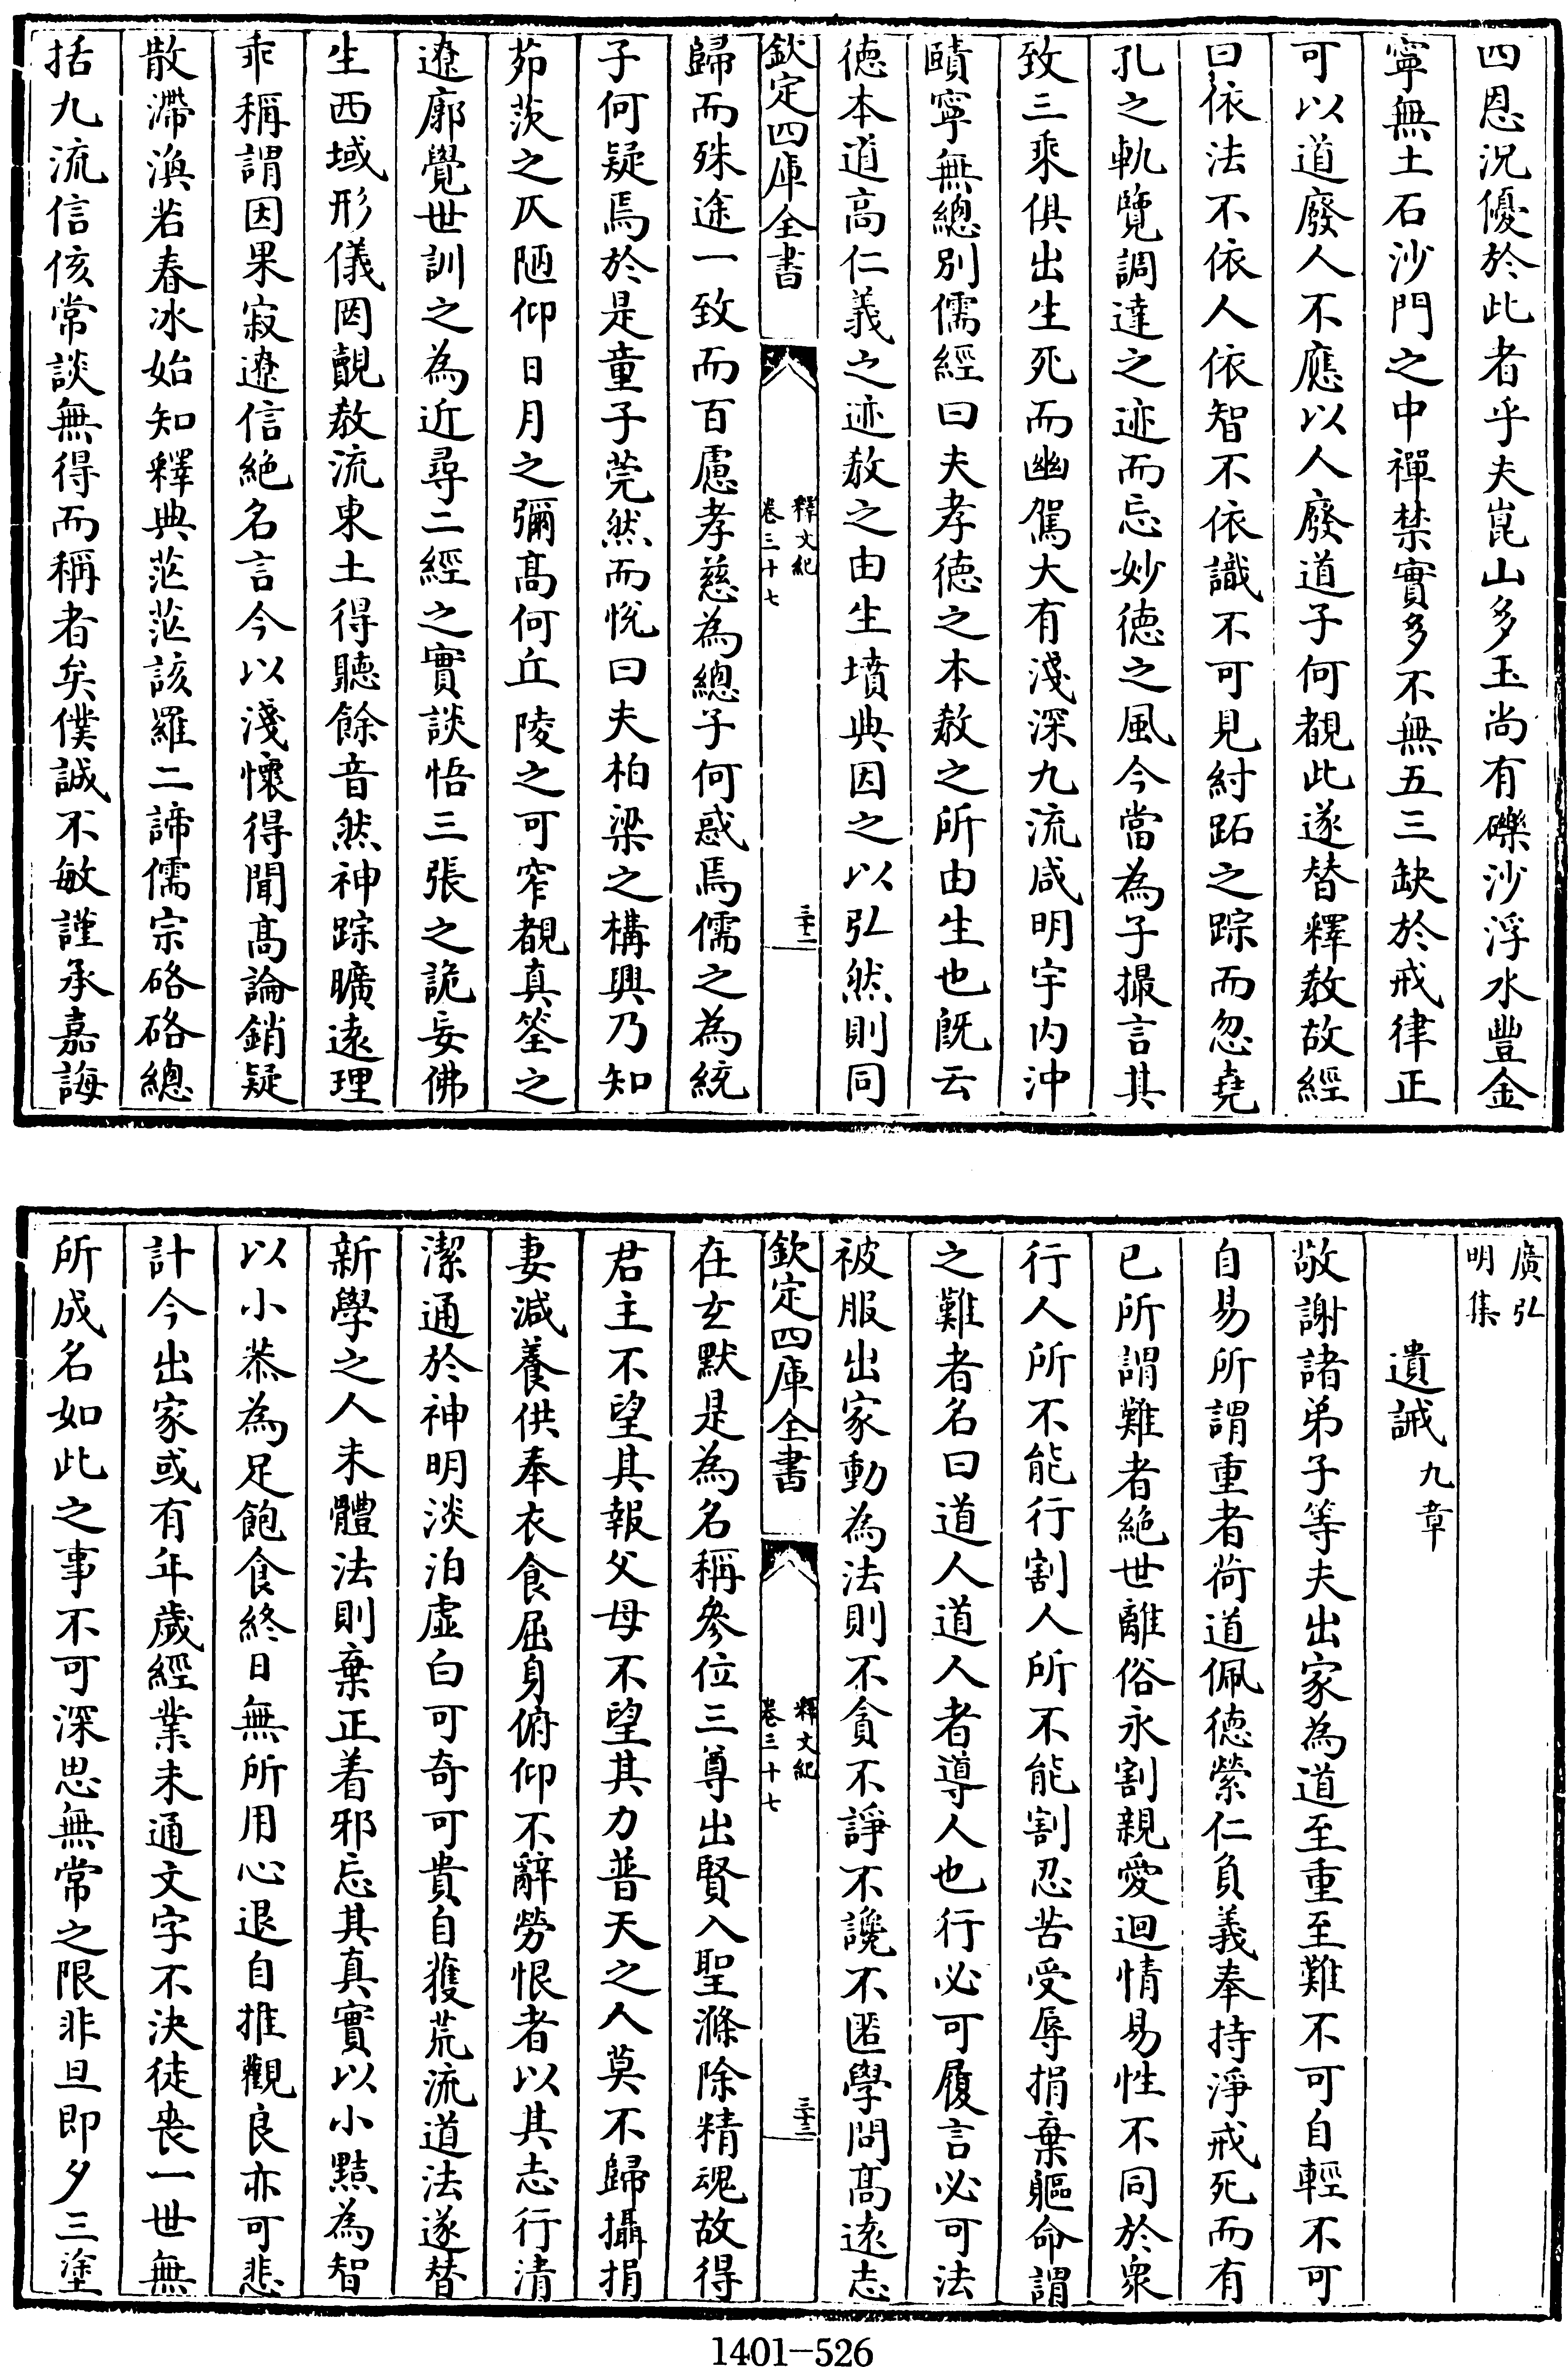 四恩況優於此者乎夫崑山多玉尚有礫沙浮水豐金
寧無土石沙門之中禪禁實多不無五三缺於戒律正
可以道廢人不應以人廢道子何覩此遂替釋教故經
曰依法不依人依智不依識不可見紂跖之踪而忽堯
孔之軌覽調達之迹而忘妙徳之風今當為子撮言其
致三乘俱出生死而幽駕大有淺深九流咸明宇内沖
賾寧無總別儒經曰夫孝徳之本教之所由生也既云
徳本道高仁義之迹教之由生墳典因之以弘然則同
欽定四庫全書
釋文紀
卷三十七
三十二
歸而殊途一致而百慮孝慈為總子何惑焉儒之為統
子何疑焉於是童子莞然而恱曰夫柏梁之構興乃知
茆茨之仄陋仰日月之彌髙何丘陵之可窄覩真筌之
遼廓覺世訓之為近尋二經之實談悟三張之詭妄佛
生西域形儀罔覿教流東土得聽餘音然神踪曠遠理
乖稱謂因果寂遼信絶名言今以淺懷得聞髙論銷疑
散滯渙若春冰始知釋典茫茫該羅二諦儒宗硌硌總
括九流信侅常談無得而稱者矣僕誠不敏謹承嘉誨
廣弘
明集
遺誡九章
敬謝諸弟子等夫出家為道至重至難不可自輕不可
自易所謂重者荷道佩徳縈仁負義奉持淨戒死而有
已所謂難者絶世離俗永割親愛迴情易性不同於衆
行人所不能行割人所不能割忍苦受辱捐棄軀命謂
之難者名曰道人道人者導人也行必可履言必可法
被服出家動為法則不貪不諍不讒不匿學問髙逺志
欽定四庫全書
釋文紀
卷三十七
三十三
在玄默是為名稱參位三尊出賢入聖滌除精魂故得
君主不望其報父母不望其力普天之人莫不歸攝捐
妻減養供奉衣食屈身俯仰不辭勞恨者以其志行清
潔通於神明淡泊虚白可奇可貴自獲荒流道法遂替
新學之人未體法則棄正着邪忘其真實以小黠為智
以小恭為足飽食終日無所用心退自推觀良亦可悲
計今出家或有年歲經業未通文字不決徒喪一世無
所成名如此之事不可深思無常之限非旦即夕三塗
1401-526